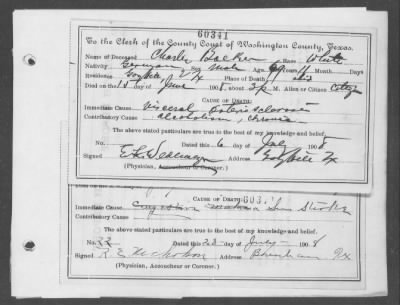 60341
To the Clerk of the County Court of Washington County, Texas.
Name of Deceased Charles Race White
Nativity German Sex Male Age 69 Years 11 Months Days
Residence Tx Place of Death this
Died on the 15 day of June 1908, about 5 P. M. Alien or Citizen Citizen
CAUSE OF DEATH:
Immediate Cause visceral arteriosclerosis
Contributory Cause alcoholism, chronic
The above stated particulars are true to the best of my knowledge and belief.
Dated this 6 day of July 1908
Signed Address Tx
(Physician, Accoucheur or Coroner.)
CAUSE OF DEATH:
Immediate Cause Congestion
Contributory Cause
The above stated particulars are true to the best of my knowledge and belief.
No. 22 Dated this 23 day of July 1908
Signed R. E. Nicholson Address Brenham Tx
(Physician, Accoucheur or Coroner.)